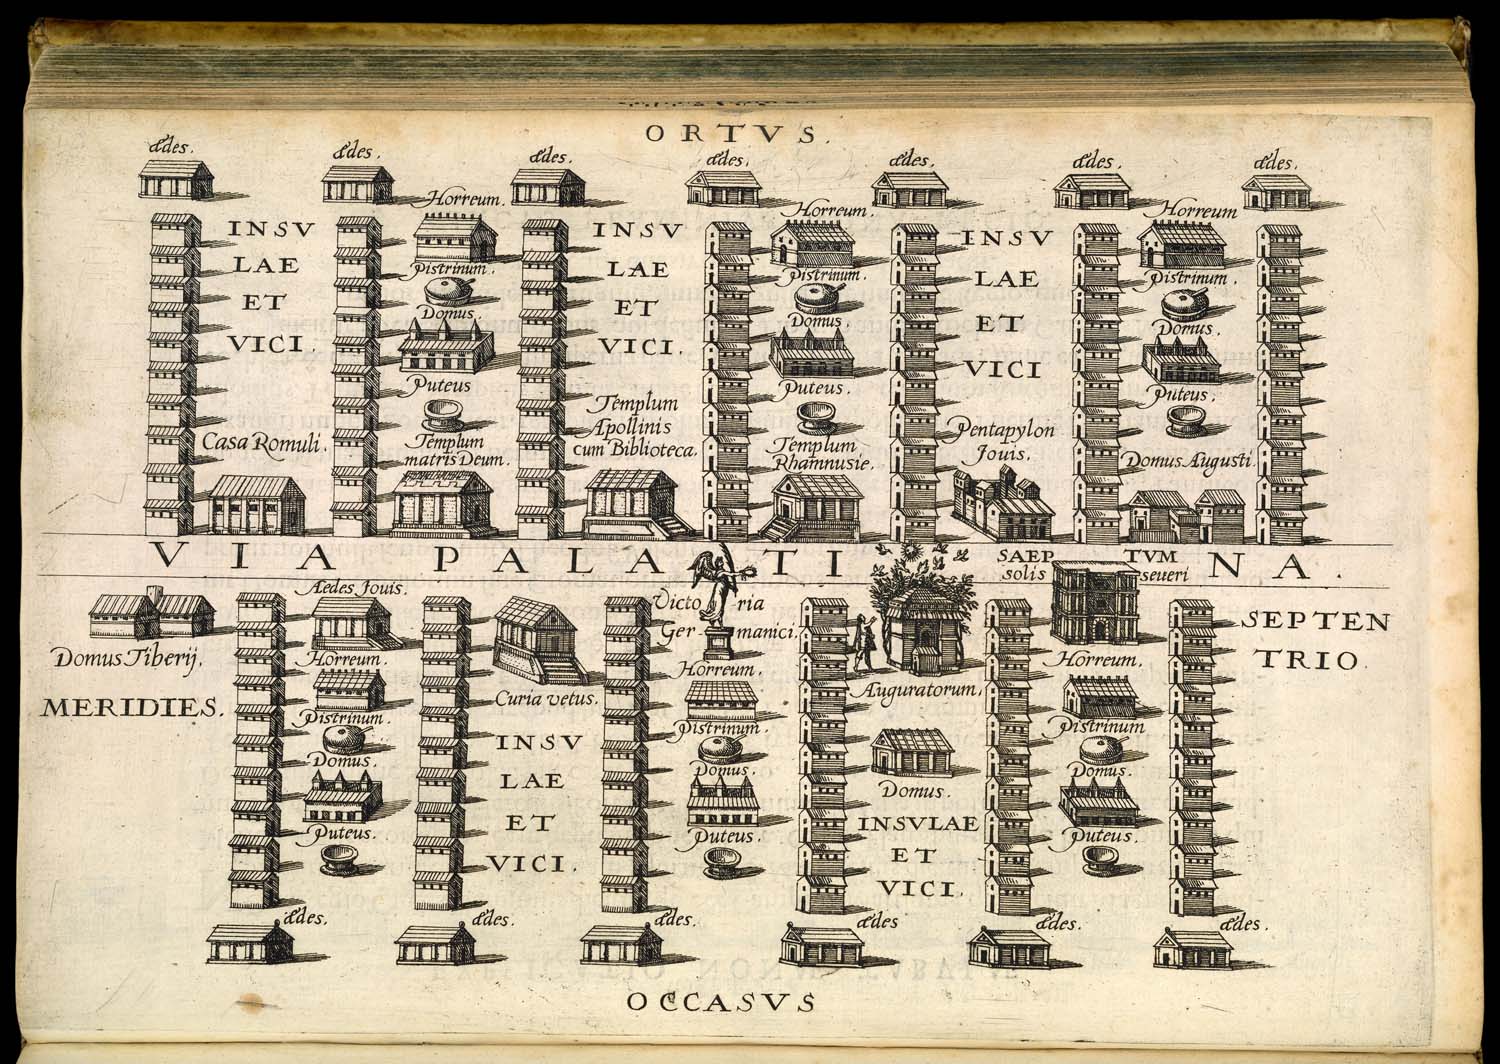 ORTVS.
ædes.
ædes.
ædes.
ædes.
ædes.
ædes.
ædes.
INSV
LAE
ET
VICI.
Horreum.
Pistrinum.
Domus.
Puteus
INSV
LAE
ET
VICI.
Horreum.
Pistrinum.
Domus.
Puteus.
INSV
LAE
ET
VICI
Horreum
Pistrinum
Domus.
Puteus.
Casa Romuli.
Templum
matris Deum.
Templum
Apollinis
cum Biblioteca.
Templum
Rhamnusie.
Pentapylon
Jouis.
Domus Augusti.
VIA PALATINA.
SAEPTVM
solis seueri
Domus Tiberij.
MERIDIES.
Aedes Jouis.
Horreum.
Pistrinum.
Domus.
Puteus.
Curia vetus.
INSV
LAE
ET
VICI.
Victoria
Germanici.
Horreum.
Pistrinum.
Domus.
Puteus.
Auguratorum.
Domus.
INSVLAE
ET
VICI.
Horreum.
Pistrinum
Domus.
Puteus.
SEPTEN
TRIO.
ædes.
ædes.
ædes.
ædes
ædes.
ædes.
OCCASVS